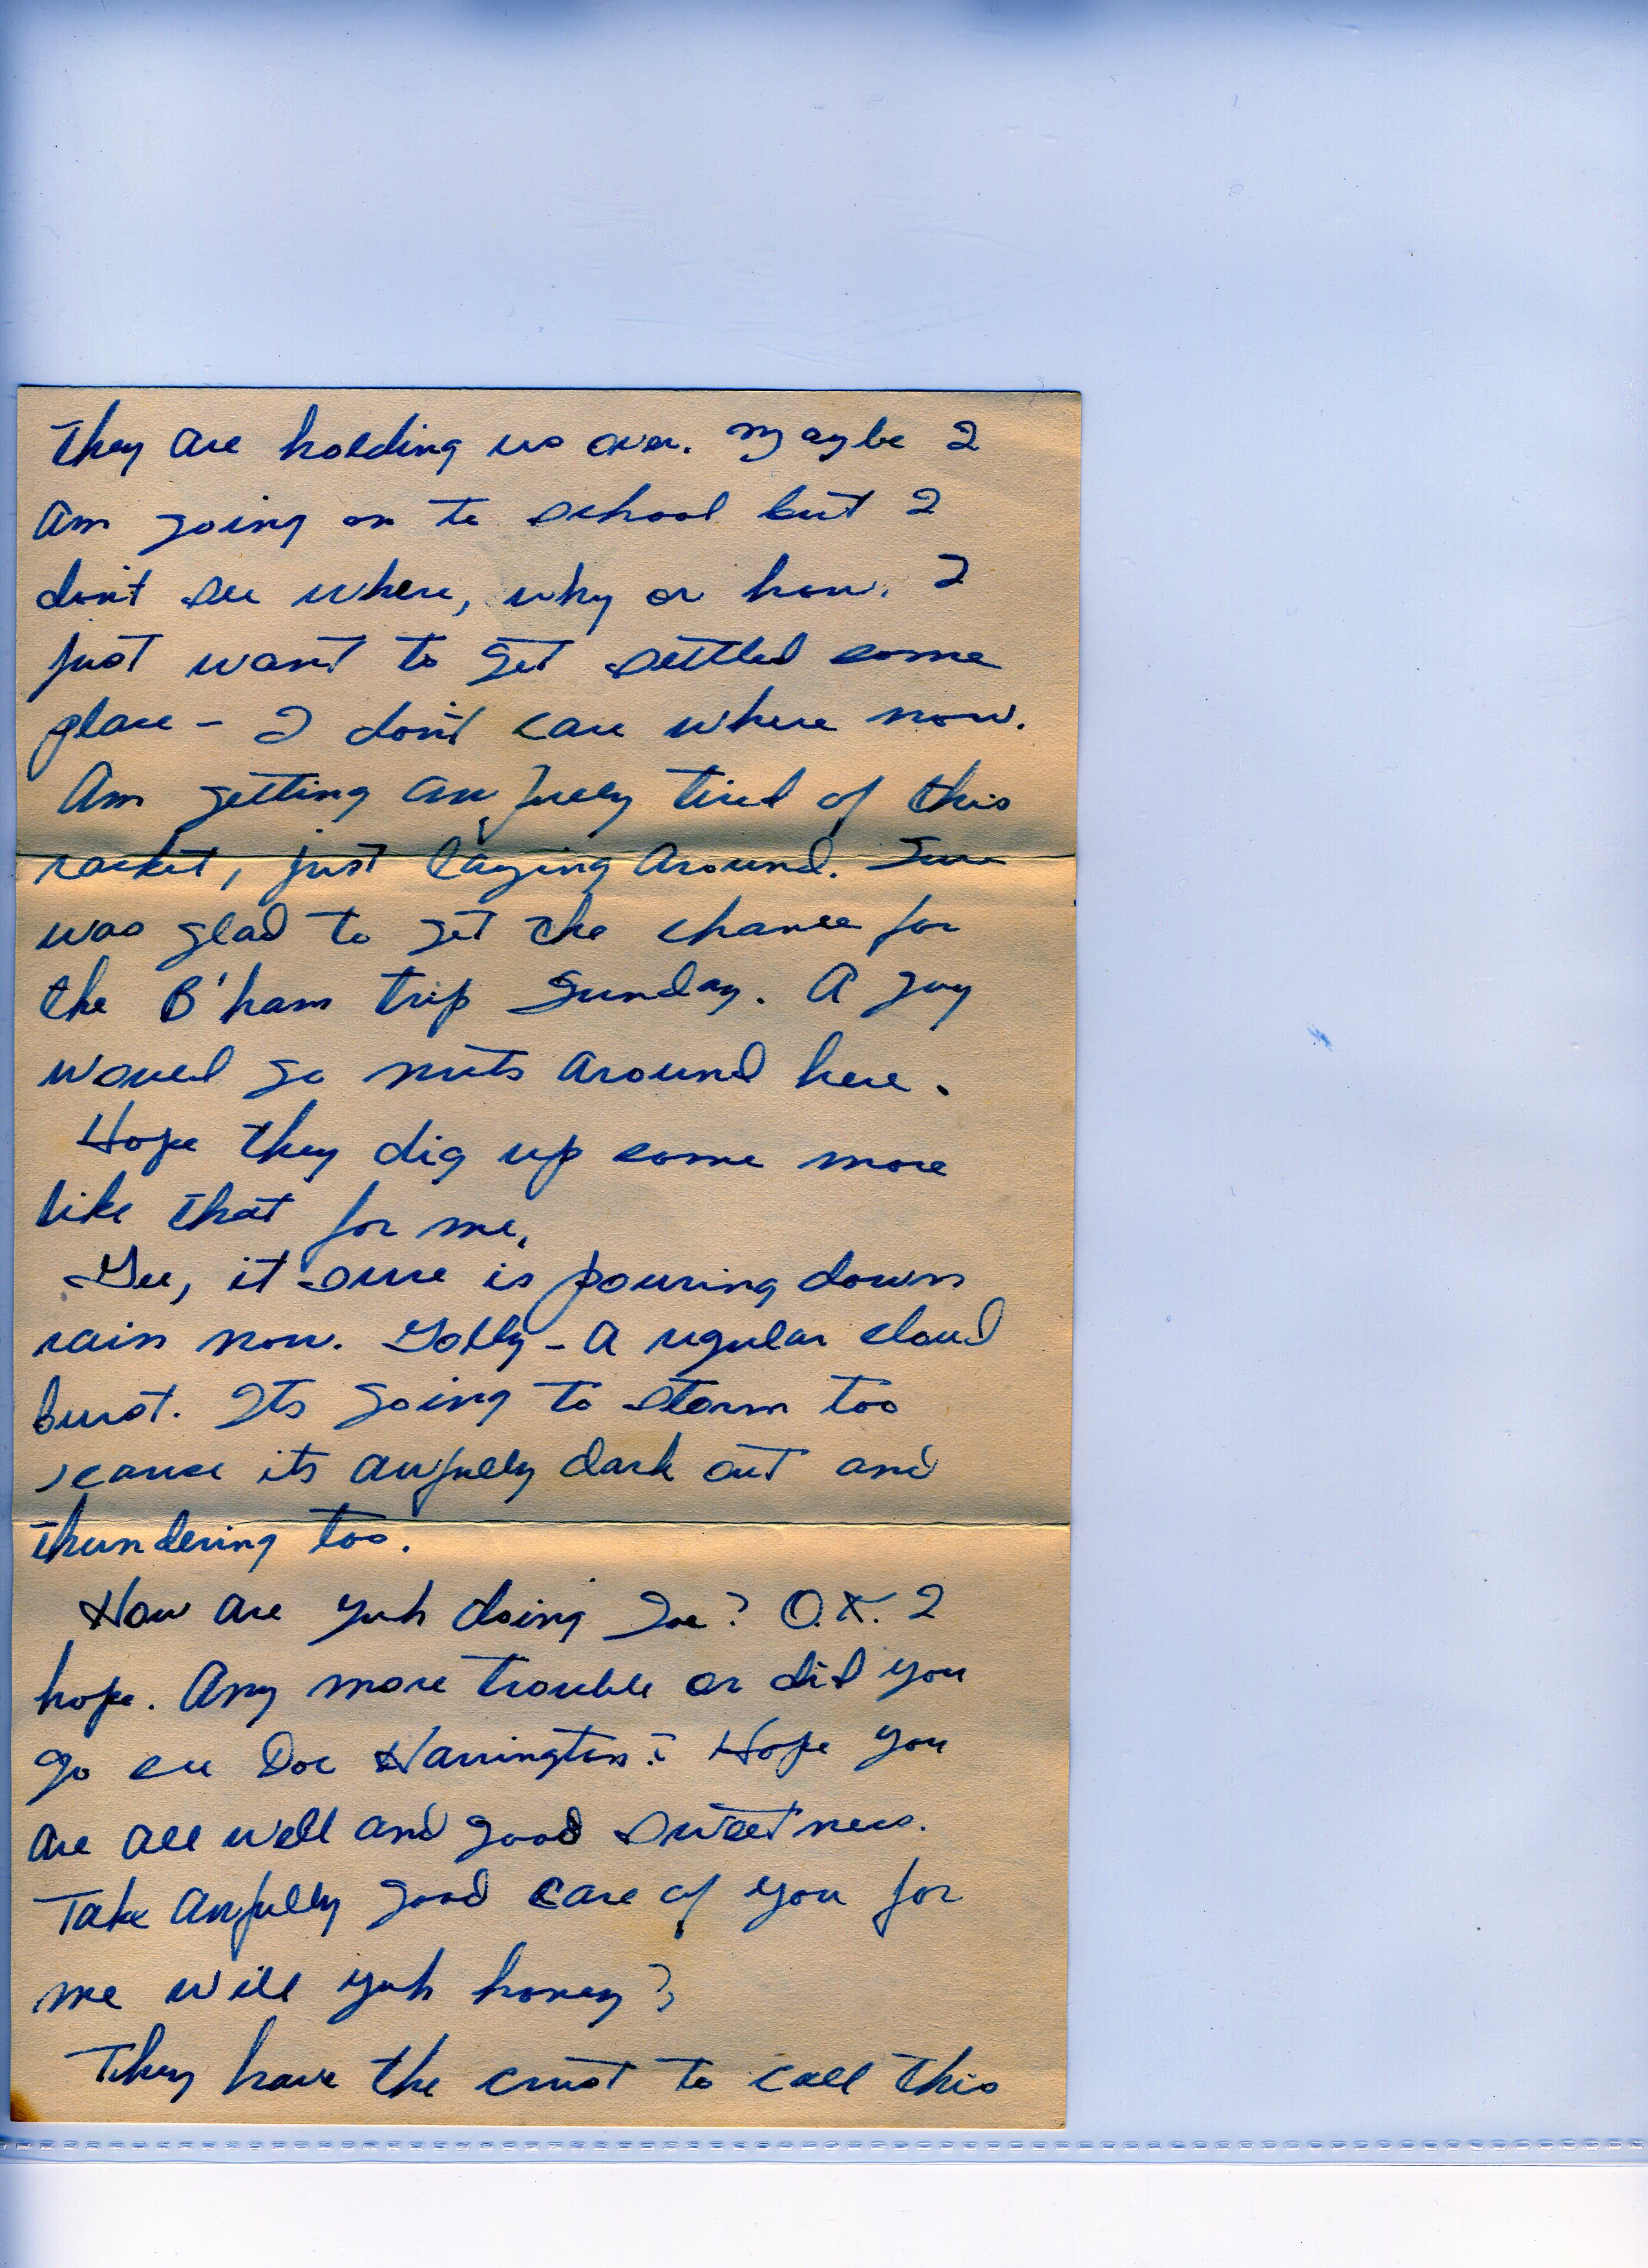 They are holding us over. Maybe I
am going on to school but I
don't see where, why or how. I
just want to get settled some
place - I don't care where now.
Am getting awfully tired of this
racket, just laying around. Sure
was glad to get the chance for
the B'ham trip Sunday. A guy
would go nuts around here.
Hope they dig up some more
like that for me.
Gee, it sure is pouring down
rain now. Golly - A regular cloud
burst. Its going to storm too
'cause its awfully dark out and
thundering too.
How are yuh doing Joe? O.K. I
hope. Any more trouble or did you
go see Doc Harrington? Hope you
are all well and good sweetness.
Take awfully good care of you for
me will yuh honey?
They have the crust to call this